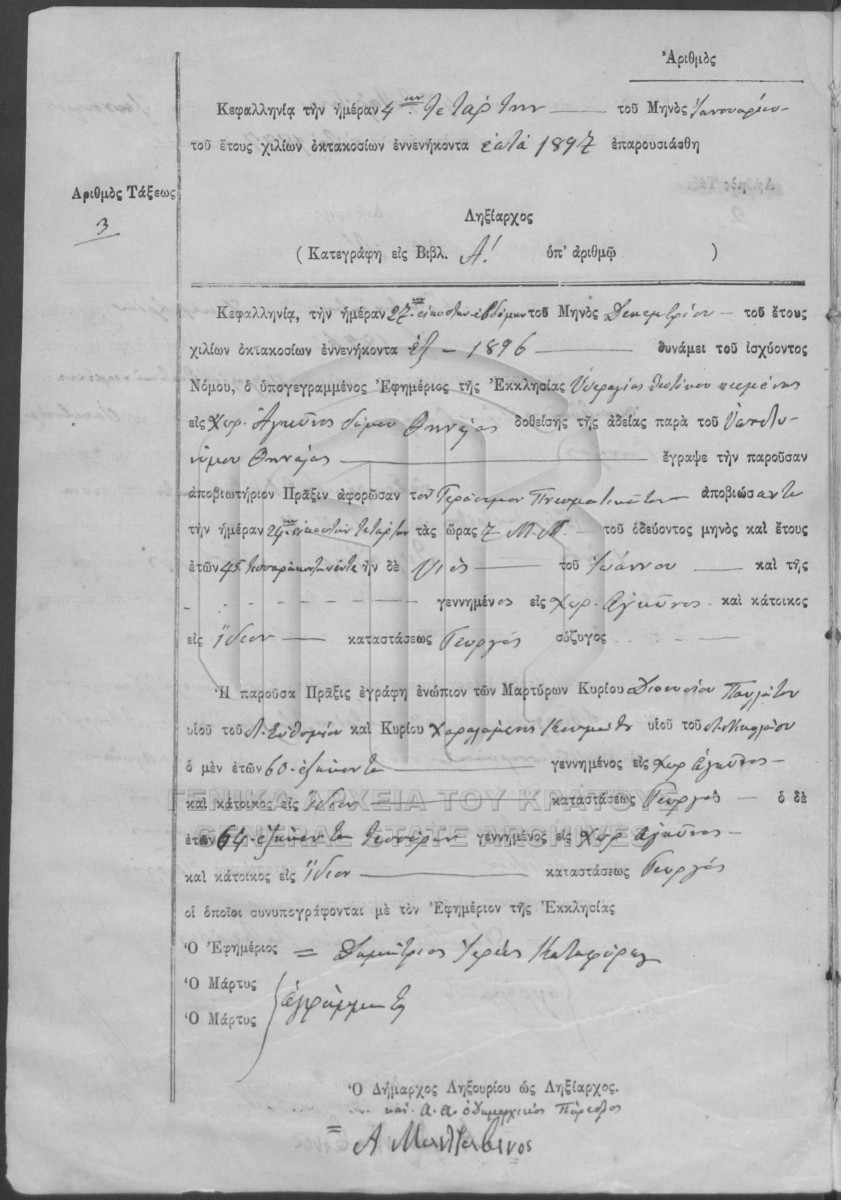 Ἀριθμὸς
Κεφαλληνίᾳ τὴν ἡμέραν 4ην τετάρτην τοῦ Μηνὸς Ἰανουαρίου
τοῦ ἔτους χιλίων ὀκτακοσίων ἐννενήκοντα ἑπτά 1897 ἐπαρουσιάσθη
Ἀριθμὸς Τάξεως
3
Ληξίαρχος
(Κατεγράφη εἰς Βιβλ. Α! ὑπ' ἀριθμῷ )
Κεφαλληνίᾳ, τὴν ἡμέραν 27 εἰκοστὴν ἑβδόμην τοῦ Μηνὸς Δεκεμβρίου τοῦ ἔτους
χιλίων ὀκτακοσίων ἐννενήκοντα ἕξ - 1896 δυνάμει τοῦ ἰσχύοντος
Νόμου, ὁ ὑπογεγραμμένος Ἐφημέριος τῆς Ἐκκλησίας Ὑπεραγίας
εἰς Χωρ. Ἀγκῶνος δήμου Θηναίας δοθείσης τῆς ἀδείας παρὰ τοῦ Ὑπαστυ-
νόμου Θηναίας ἔγραψε τὴν παροῦσαν
ἀποβιωτήριον Πρᾶξιν ἀφορῶσαν τὸν Γεράσιμον Πνευματικάτον ἀποβιώσαντα
τὴν ἡμέραν 24 εἰκοστὴν τετάρτην τὰς ὥρας 7 Μ.Μ. τοῦ ὁδεύοντος μηνὸς καὶ ἔτους
ἐτῶν 45 τεσσαράκοντα πέντε ἦν δὲ υἱὸς τοῦ Ἰωάννου καὶ τῆς
γεννημένος εἰς Χωρ. Ἀγκῶνος καὶ κάτοικος
εἰς ἴδιον καταστάσεως Γεωργός σύζυγος
Ἡ παροῦσα Πρᾶξις ἐγράφη ἐνώπιον τῶν Μαρτύρων Κυρίου Διονυσίου Παυλάτου
υἱοῦ τοῦ Εὐθυμίου καὶ Κυρίου Χαραλάμπη υἱοῦ τοῦ
ὁ μὲν ἐτῶν 60 ἑξήκοντα γεννημένος εἰς Χωρ Ἀγκῶνος
καὶ κάτοικος εἰς ἴδιον καταστάσεως Γεωργός ὁ δὲ
ΓΕΝΙΚΑ ΑΡΧΕΙΑ ΤΟΥ ΚΡΑΤΟΥΣ
GENERAL STATE ARCHIVES
ἐτῶν 64 ἑξήκοντα τεσσάρων γεννημένος εἰς Χωρ Ἀγκῶνος
καὶ κάτοικος εἰς ἴδιον καταστάσεως Γεωργός
οἱ ὁποῖοι συνυπογράφονται μὲ τὸν Ἐφημέριον τῆς Ἐκκλησίας
Ὁ Ἐφημέριος = Δημήτριος Ἱερεύς
Ὁ Μάρτυς
ἀγράμματοι
Ὁ Μάρτυς
Ὁ Δήμαρχος Ληξουρίου ὡς Ληξίαρχος.
καὶ α. α. ὁ δημαρχικὸς Πάρεδρος